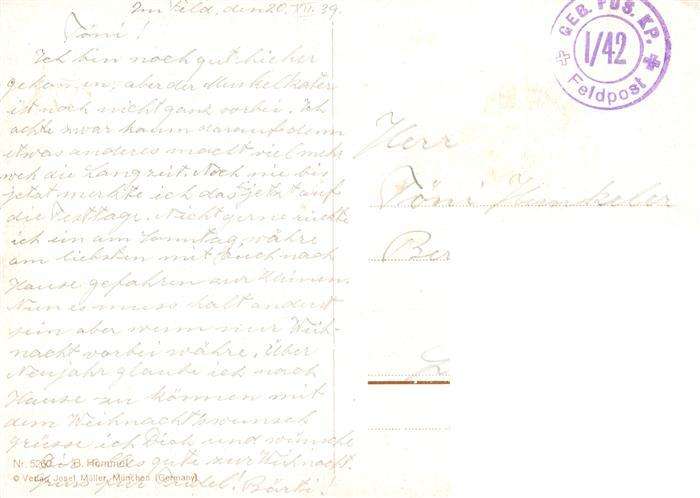 Im Feld, den 20. XII. 39.
Töni!
Ich bin noch gut hieher
gekommen, aber der Muskelkater
ist noch nicht ganz vorbei. Ich
achte zwar kaum darauf denn
etwas anderes macht viel mehr
weh die Langzeit. Noch nie bis
jetzt merkte ich das jetzt auf
die Festtage. Nicht gerne rückte
ich ein am Sonntag, währe
am liebsten mit Euch nach
Hause gefahren zur
Nun es muss halt anderst
sein aber wenn nur Weih-
nacht vorbei währe. Über
Neujahr glaube ich nach
Hause zu können mit
dem Weihnachtswunsch
grüsse ich Dich und wünsche
alles gute zur Weihnacht.
GEB. POS. KP.
I/42
Feldpost
Herr
Töni
Ber
Nr. 5260 B. Hummel
© Verlag Josef Müller, München (Germany)